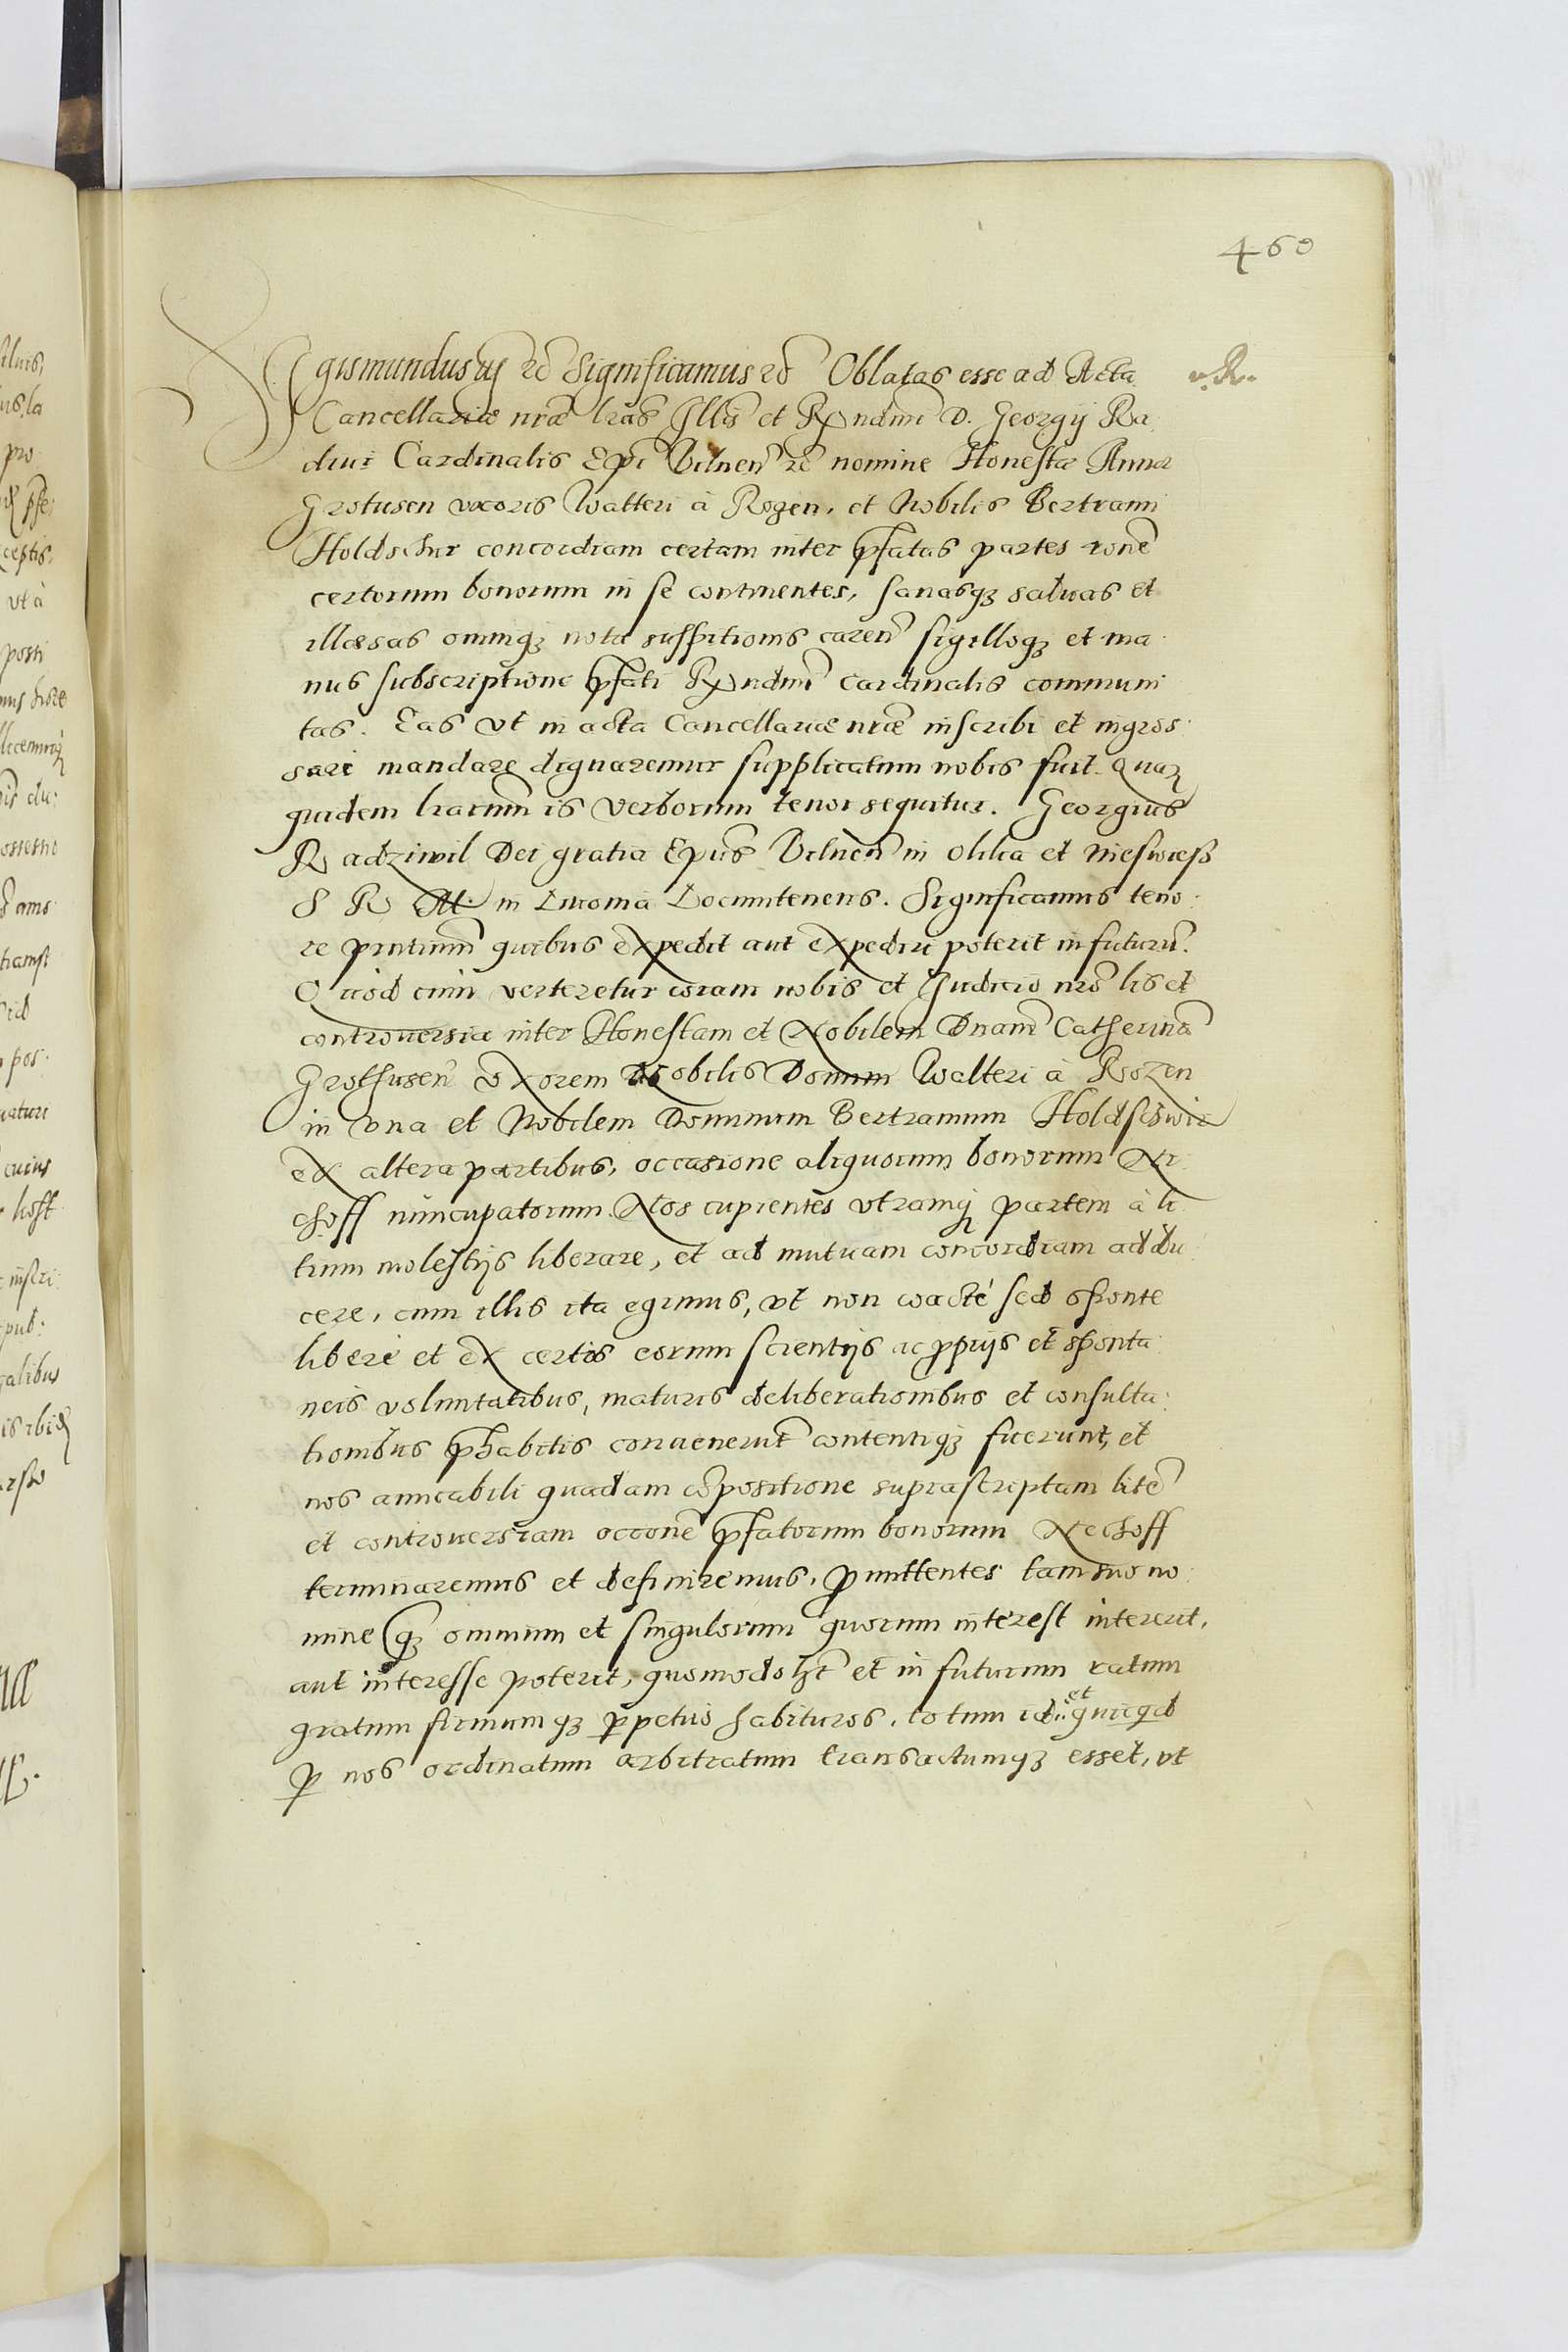 460
Sigismundus iij etc Significamus etc Oblatas esse ad Acta
Cancellariæ nr̃æ lr̃as Illis et Rx̃ndmi D. Georgij Ra
diui Cardinalis Ep̃i Vilnen̄ etc nomine Honestæ Annæ
Grotusen uxoris Walteri à Rozen, et Nobilis Bertrami
Holdschur concordiam certam inter p̃fatas partes rōne
certorum bonorum in se continentes, sanasq₃ saluas et
illæsas omniq₃ nota suspitionis caren̄ sigilloq₃ et ma
nus subscriptione p̃fati Rx̃ndmi Cardinalis communi
tas. Eas vt in acta Cancellariæ nr̃æ inscribi et ingros
sare mandare dignaremur supplicatum nobis fuit. Quaꝝ
quidem lr̃arum is verborum tenor sequitur. Georgius
Radziwil Dei gratia Ep̃us Vilnen̄ in Olika et Nieswieß
S R M. in Liuonia Locumtenens. Significamus teno
re p̃ntium quibus expedit aut expediri poterit in futurū.
Quod cum verteretur coram nobis et Judicio nr̃o lis et
controuersia inter Honestam et Nobilem Dnam Catherinā
Grothusen uxorem Nobilis Domini Walteri à Rozen
in vna et Nobilem Dominum Bertramum Holdschwir
ex altera partibus, occasione aliquorum bonorum Ne
choff nuncupatorum. Nos cupientes vtramq₃ partem à li
tium molestijs liberare, et ad mutuam concordiam addu
cere, cum illis ita egimus, vt non coacte sed sponte
libere et ex certis eorum scientijs ac ꝓprijs et sponta
neis voluntatibus, maturis deliberationibus et consulta
tionibus p̃habitis conuenerūt contentiq₃ fuerunt, et
nos amicabili quadam cōpositione suprascriptam litē
et controuersiam occōne p̃fatorum bonorum Nechoff
terminaremus et definiremus, ꝓmittentes tam suo no
mine q₃ omnium et singulorum quorum interest intererit,
aut interesse poterit, quomodolꝫt et in futurum ratum
gratum firmumq₃ ꝑpetuo habituros, totum id et quicqd
ꝑ nos ordinatum arbitratum transactumq₃ esset, vt